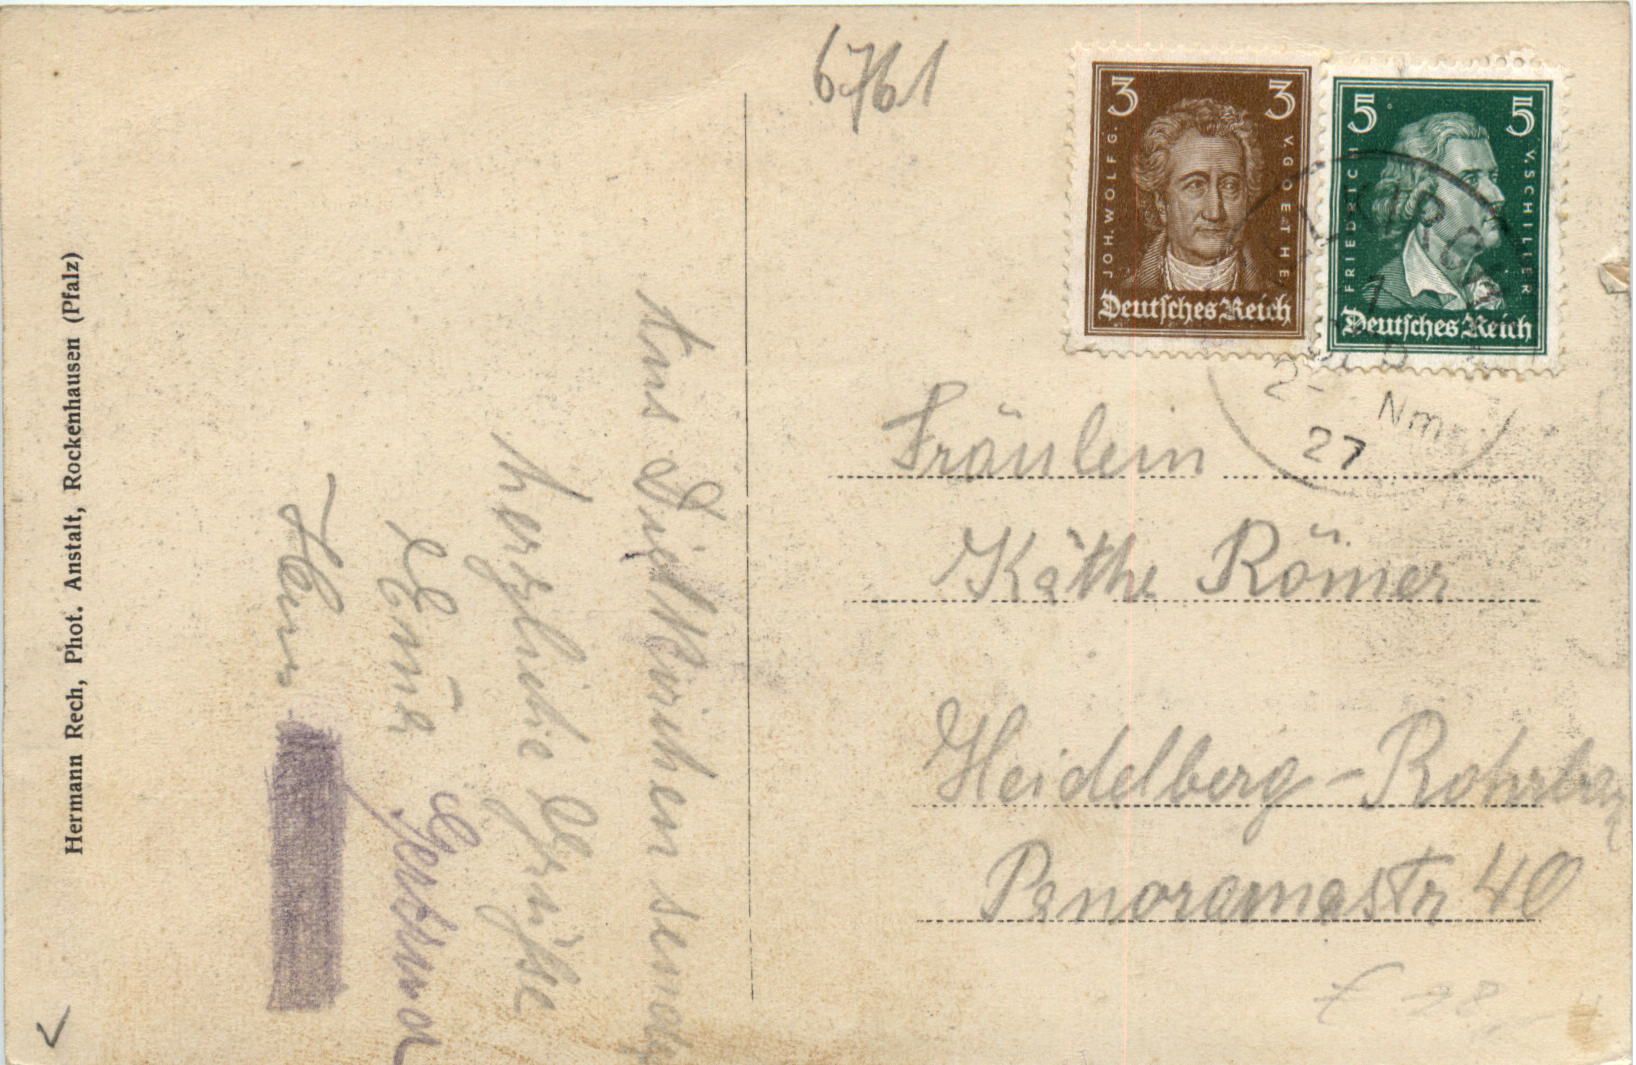 Hermann Rech, Phot. Anstalt, Rockenhausen (Pfalz)
Aus Dielkirchen sendet
herzliche Grüße
Gertrud
6761
3 3
JOH. WOLFG. V. GOETHE
Deutsches Reich
5 5
FRIEDRICH V. SCHILLER
Deutsches Reich
2- Nm
27
Fräulein
Käthe Römer
Heidelberg-Rohrba
Panoramastr 40